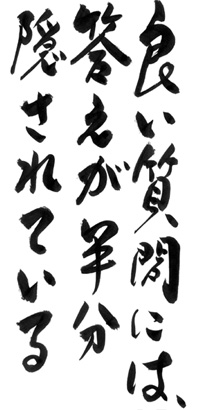 良い質問には、
答えが半分
隠されている